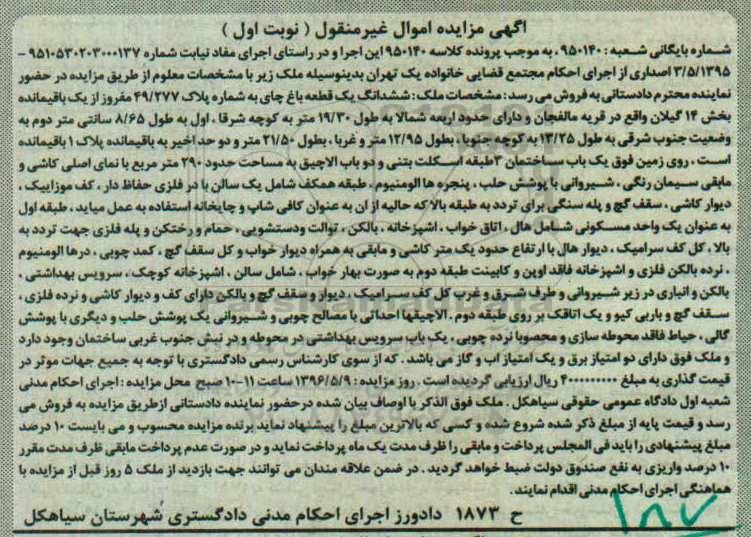 آگهی مزایده اموال غیرمنقول ( نوبت اول )
شماره بایگانی شعبه : ۹۵۰۱۴۰ ، به موجب پرونده کلاسه ۹۵۰۱۴۰ این اجرا و در راستای اجرای مفاد نیابت شماره ۹۵۱۰۵۳۰۲۰۳۰۰۰۱۳۷ -
۳/۵/۱۳۹۵ اصداری از اجرای احکام مجتمع قضایی خانواده یک تهران بدینوسیله ملک زیر با مشخصات معلوم از طریق مزایده در حضور
نماینده محترم دادستانی به فروش می رسد : مشخصات ملک : ششدانگ یک قطعه باغ چای به شماره پلاک ۴۹/۲۷۷ مفروز از یک باقیمانده
بخش ۱۴ گیلان واقع در قریه مالفجان و دارای حدود اربعه شمالا به طول ۱۹/۳۰ متر به کوچه شرقا ، اول به طول ۸/۶۵ سانتی متر دوم به
وضعیت جنوب شرقی به طول ۱۳/۲۵ به کوچه جنوبا ، بطول ۱۲/۹۵ متر و غربا ، بطول ۲۱/۵۰ متر و دو حد اخیر به باقیمانده پلاک ۱ باقیمانده
است ، روی زمین فوق یک باب ساختمان ۳طبقه اسکلت بتنی و دو باب الاچیق به مساحت حدود ۲۹۰ متر مربع با نمای اصلی کاشی و
مابقی سیمان رنگی ، شیروانی با پوشش حلب ، پنجره ها الومنیوم . طبقه همکف شامل یک سالن با در فلزی حفاظ دار ، کف موزاییک ،
دیوار کاشی ، سقف گچ و پله سنگی برای تردد به طبقه بالا که حالیه از ان به عنوان کافی شاپ و چایخانه استفاده به عمل میاید ، طبقه اول
به عنوان یک واحد مسکونی شامل هال ، اتاق خواب ، اشپزخانه ، بالکن ، توالت ودستشویی ، حمام و رختکن و پله فلزی جهت تردد به
بالا ، کل کف سرامیک ، دیوار هال با ارتفاع حدود یک متر کاشی و مابقی به همراه دیوار خواب و کل سقف گچ ، کمد چوبی ، درها الومنیوم
، نرده بالکن فلزی و اشپزخانه فاقد اوپن و کابینت طبقه دوم به صورت بهار خواب ، شامل سالن ، اشپزخانه کوچک ، سرویس بهداشتی ،
بالکن و انباری در زیر شیروانی و طرف شرق و غرب کل کف سرامیک ، دیوار و سقف گچ و بالکن دارای کف و دیوار کاشی و نرده فلزی ،
سقف گچ و باربی کیو و یک اتاقک بر روی طبقه دوم . الاچیقها احداثی با مصالح چوبی و شیروانی یک پوشش حلب و دیگری با پوشش
گالی ، حیاط فاقد محوطه سازی و محصوبا نرده چوبی ، یک باب سرویس بهداشتی در محوطه و در نبش جنوب غربی ساختمان وجود دارد
و ملک فوق دارای دو امتیاز برق و یک امتیاز اب و گاز می باشد . که از سوی کارشناس رسمی دادگستری با توجه به جمیع جهات موثر در
قیمت گذاری به مبلغ ریال ارزیابی گردیده است . روز مزایده : ۱۳۹۶/۵/۹ ساعت ۱۱-۱۰ صبح محل مزایده : اجرای احکام مدنی
شعبه اول دادگاه عمومی حقوقی سیاهکل . ملک فوق الذکر با اوصاف بیان شده در حضور نماینده دادستانی ازطریق مزایده به فروش می
رسد و قیمت پایه از مبلغ ذکر شده شروع شده و کسی که بالاترین مبلغ را پیشنهاد نماید برنده مزایده محسوب و می بایست ۱۰ درصد
مبلغ پیشنهادی را باید فی المجلس پرداخت و مابقی را ظرف مدت یک ماه پرداخت نماید و در صورت عدم پرداخت مابقی ظرف مدت مقرر
۱۰ درصد واریزی به نفع صندوق دولت ضبط خواهد گردید . در ضمن علاقه مندان می توانند جهت بازدید از ملک ۵ روز قبل از مزایده با
هماهنگی اجرای احکام مدنی اقدام نمایند.
ح ۱۸۷۳ دادورز اجرای احکام مدنی دادگستری شهرستان سیاهکل